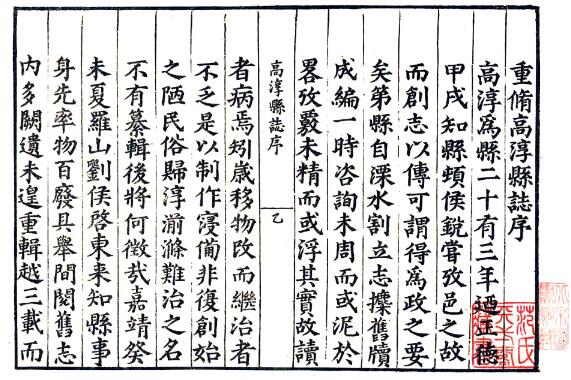 重脩高淳縣誌序
高淳爲縣二十有三年廼正德
甲戌知縣頓侯銳嘗攷邑之故
而創志以傳可謂得爲政之要
矣第縣自溧水割立志攗舊牘
成編一時咨詢未周而或泥於
畧攷覈未精而或浮其實故讀
高淳縣誌序
乙
者病焉矧嵗移物改而繼治者
不乏是以制作寖備非復創始
之陋民俗歸淳湔滌難治之名
不有纂輯後將何徵㢤嘉靖癸
未夏羅山劉侯啓東来知縣事
身先率物百廢具舉間閱舊志
内多闕遺未遑重輯越三載而